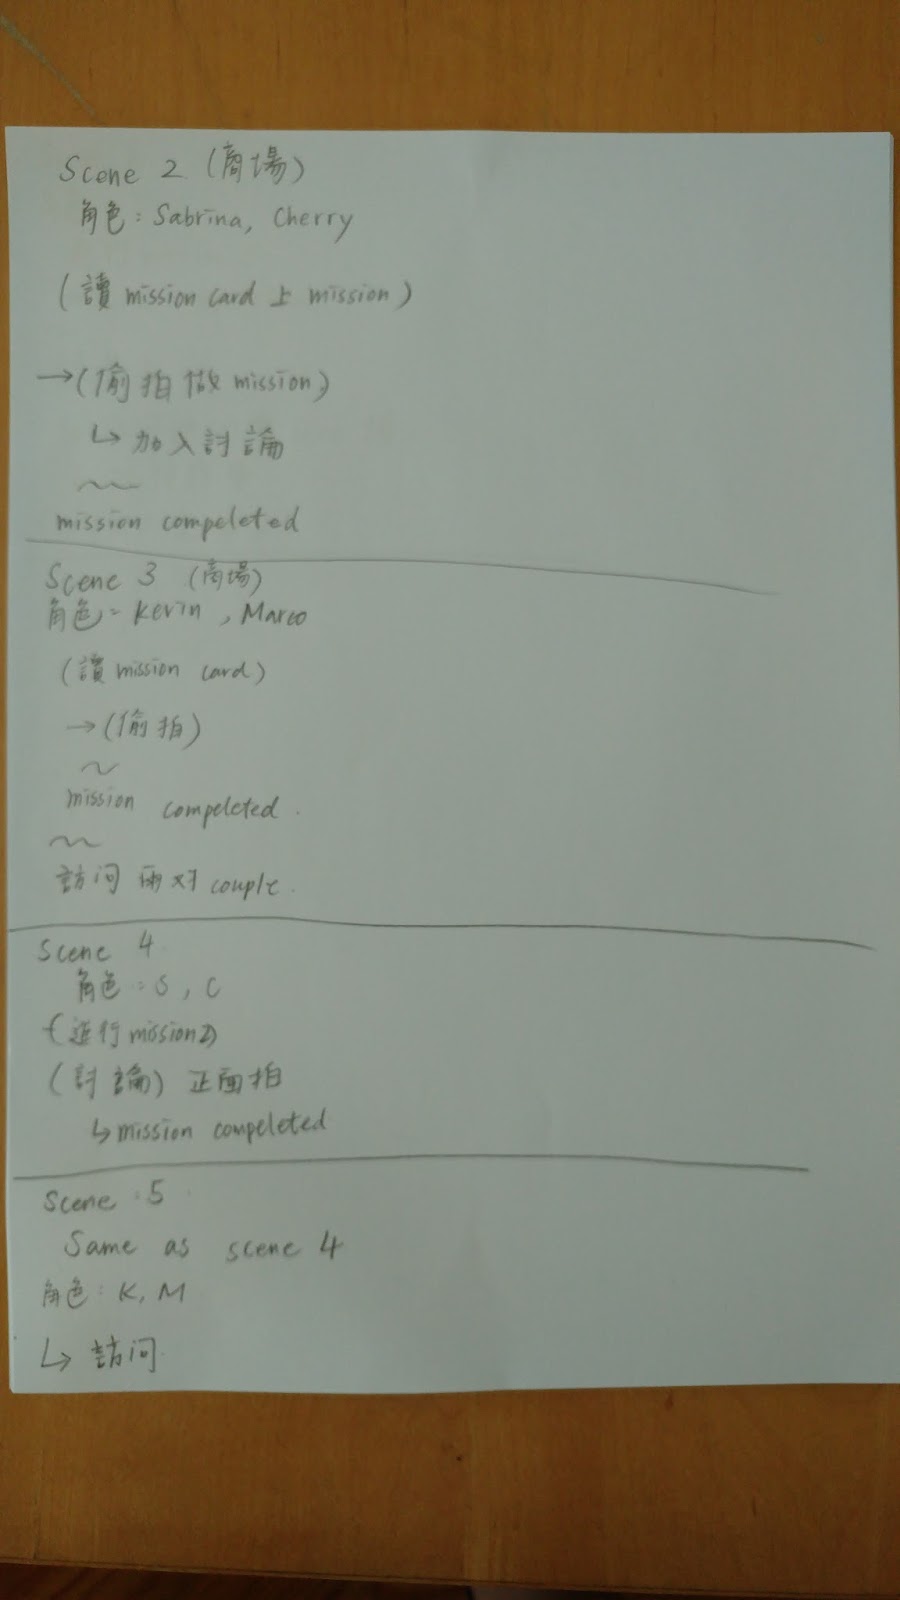 Scene 2 (商場)
角色: Sabrina, Cherry
(讀 mission card 上 mission)
→(偷拍做 mission)
↳ 加入討論
~~
mission compeleted
Scene 3 (商場)
角色: Kevin, Marco
(讀 mission card)
→(偷拍)
~
mission compeleted.
~~
訪问 兩对 couple.
Scene 4
角色: S, C
(進行 mission 2)
(討論) 正面拍
↳ mission compeleted
Scene 5
Same as scene 4
角色: K, M
↳ 訪问